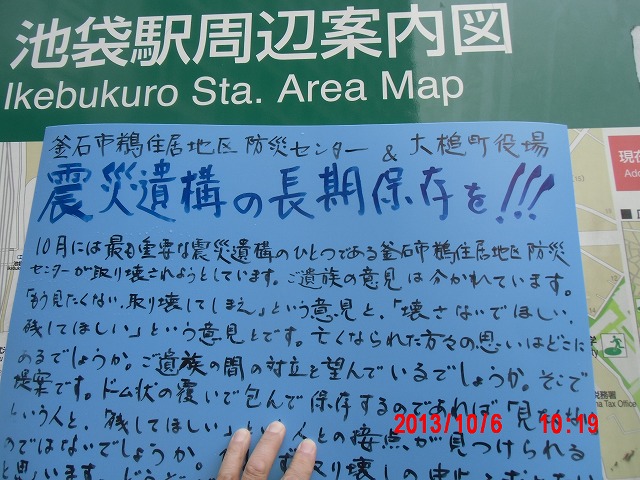 池袋駅周辺案内図
Ikebukuro Sta. Area Map
現在
釜石市鵜住居地区防災センター & 大槌町役場
震災遺構の長期保存を!!!
10月には最も重要な震災遺構のひとつである釜石市鵜住居地区防災
センターが取り壊されようとしています。ご遺族の意見は分かれています。
「もう見たくない、取り壊してしまえ」という意見と、「壊さないでほしい、
残してほしい」という意見とです。亡くなられた方々の思いはどこに
あるでしょうか。ご遺族の間の対立を望んでいるでしょうか。そこで
提案です。ドーム状の覆いで包んで保存するのであれば「見たくない
という人と、残してほしい」という人との接点が見つけられる
のではないでしょうか。
思います。
2013/10/6 10:19
税務署
Tax Office